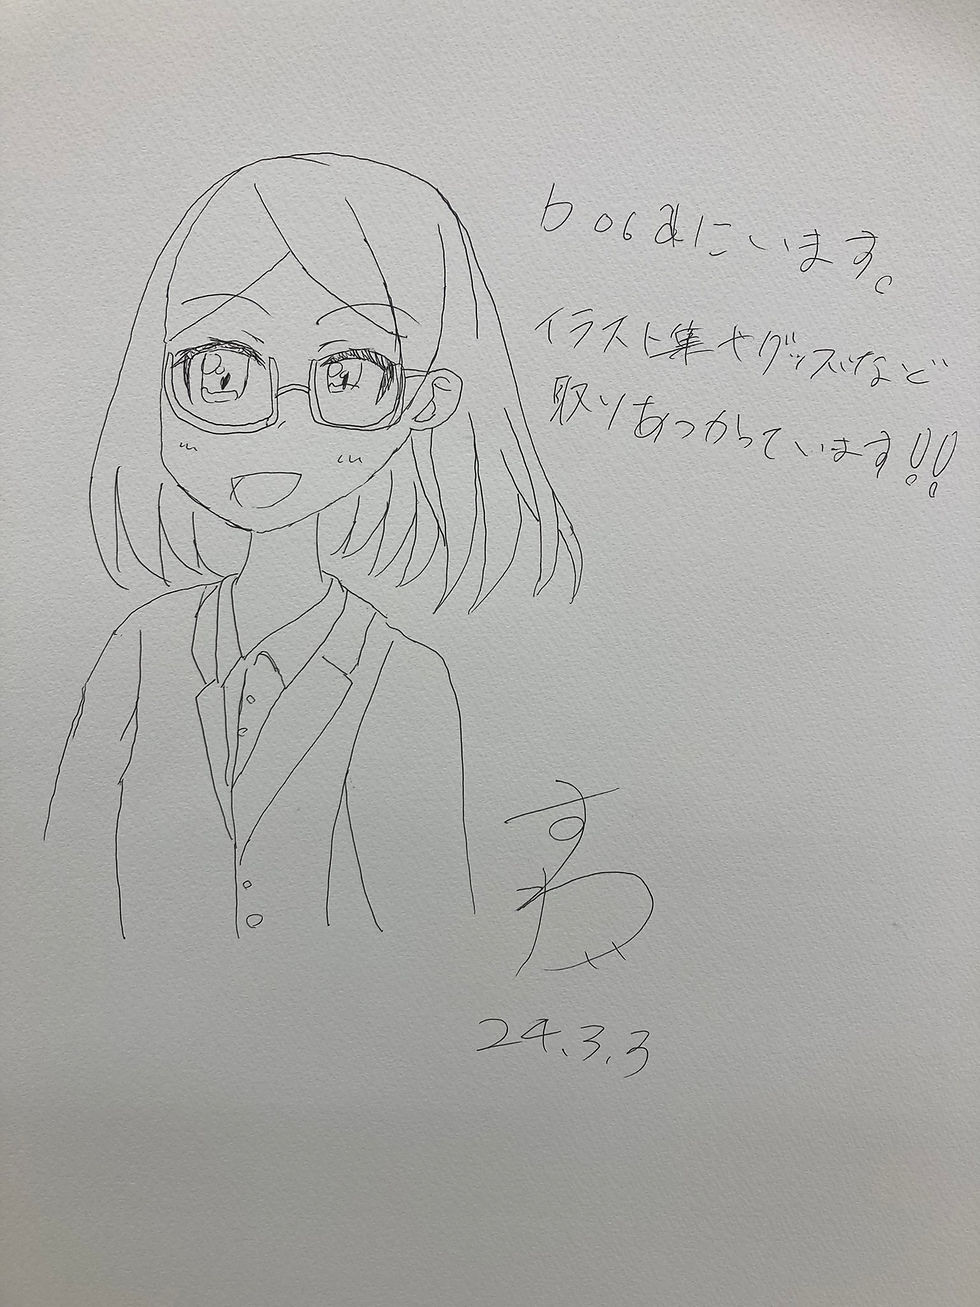 b06 あにいます。
イラスト集やグッズなど
取りあつかっています!!
すわ
24.3.3